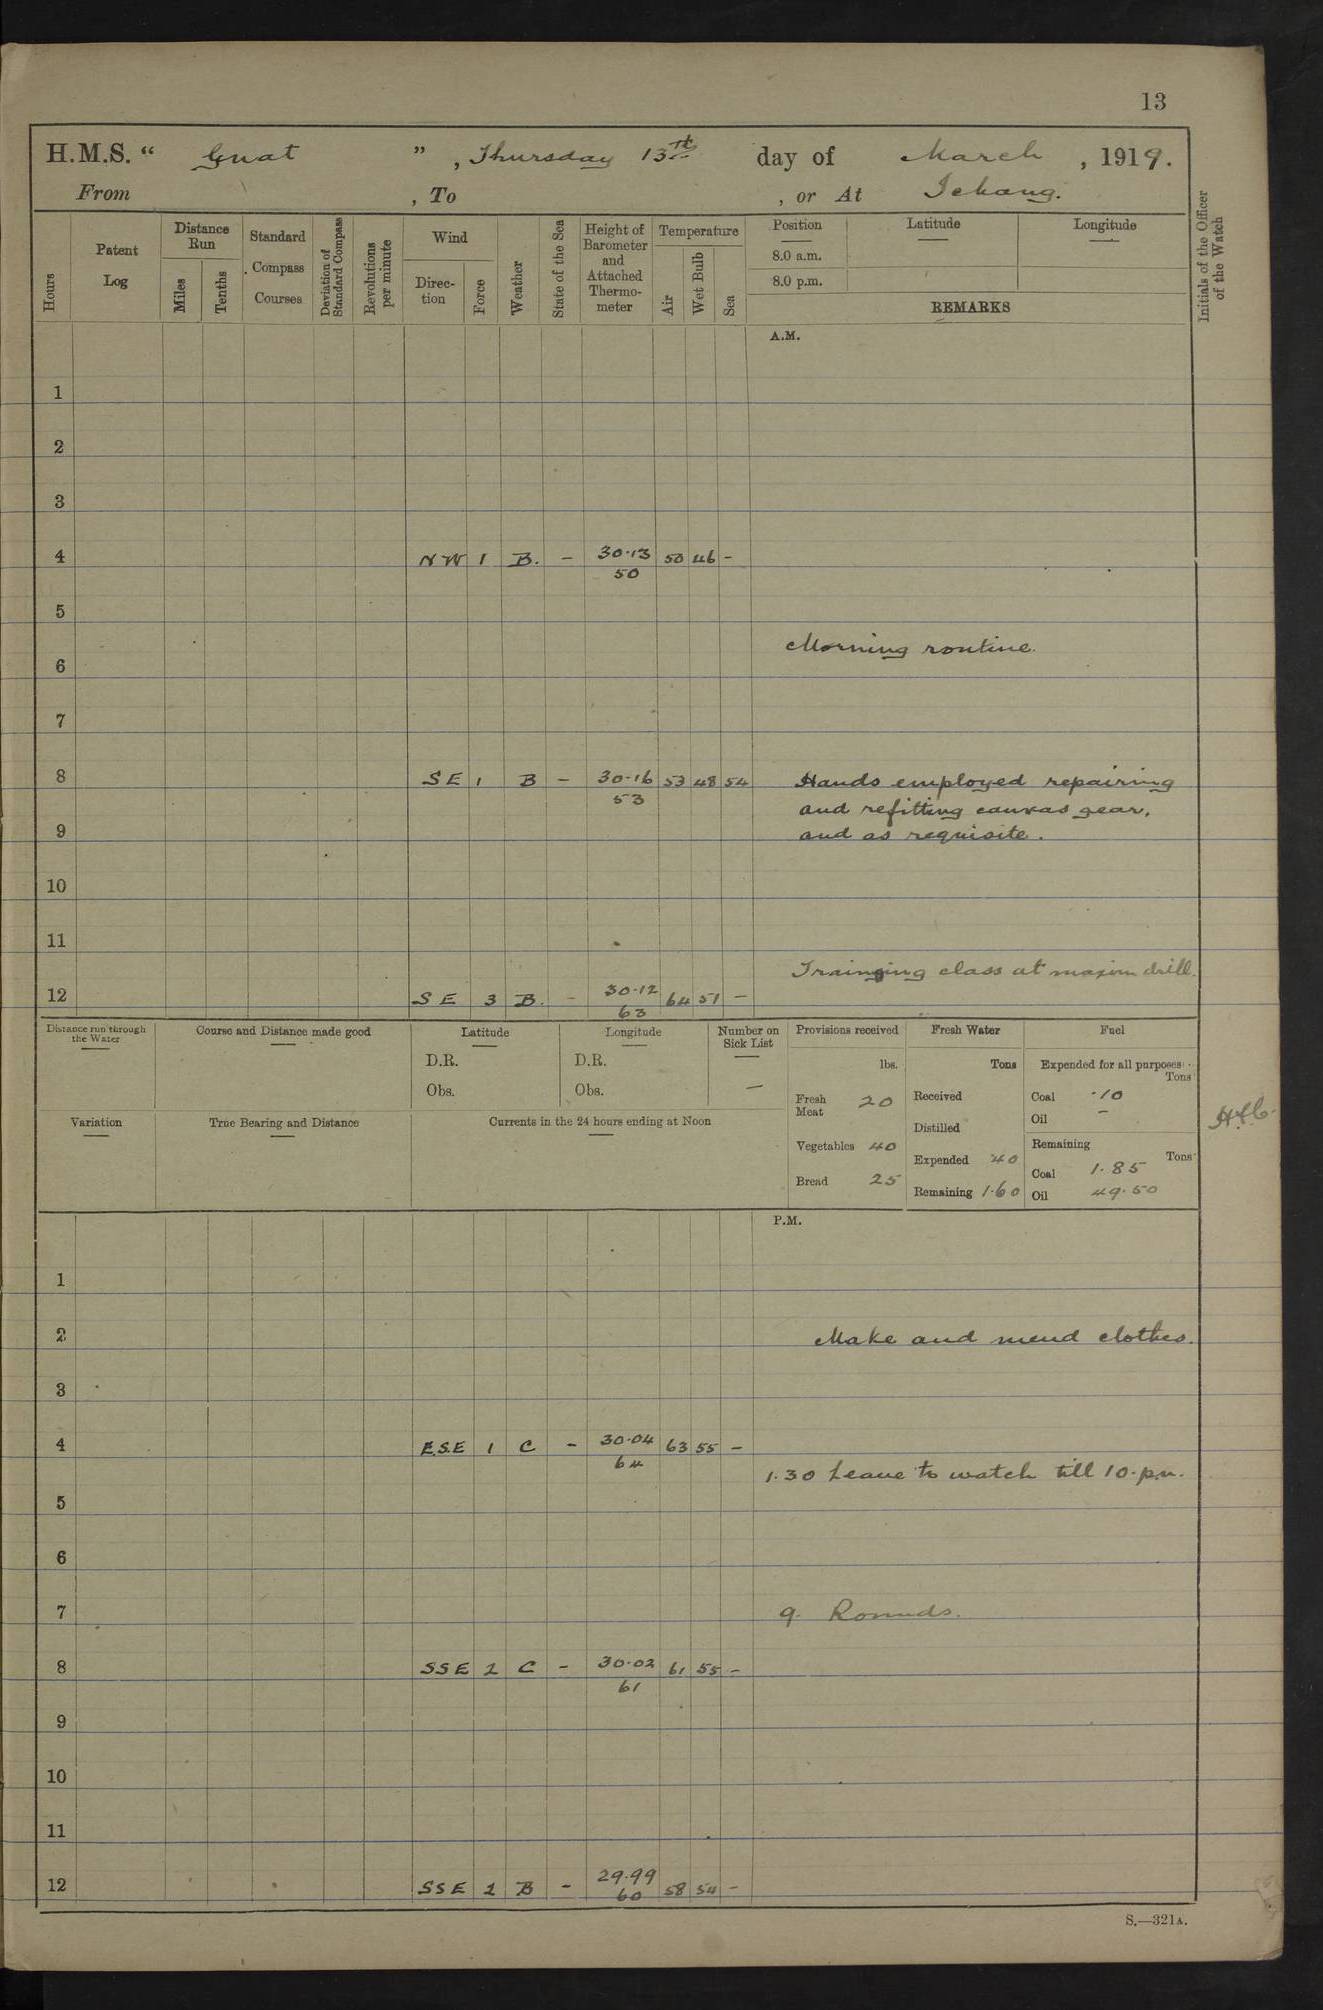 13
H.M.S. “ Gnat ” , Thursday 13th day of March , 1919.
From , To , or At Ichang.
Hours
Patent Log
Distance Run
Miles
Tenths
Standard Compass Courses
Deviation of Standard Compass
Revolutions per minute
Wind
Direction
Force
Weather
State of the Sea
Height of Barometer and Attached Thermometer
Temperature
Air
Wet Bulb
Sea
Position
8.0 a.m.
8.0 p.m.
Latitude
Longitude
REMARKS
Initials of the Officer of the Watch
A.M.
1
2
3
4 NW 1 B. - 30·13 50 46 -
50
5
Morning routine.
6
7
8 SE 1 B - 30·16 53 48 54 Hands employed repairing
53 and refitting canvas gear,
9 and as requisite.
10
11
Trainging class at maxim drill.
12 SE 3 B. - 30·12 64 51 -
63
Distance run through the Water
Course and Distance made good
Latitude
D.R.
Obs.
Longitude
D.R.
Obs.
Number on Sick List
—
Variation
True Bearing and Distance
Currents in the 24 hours ending at Noon
Provisions received
lbs.
Fresh Meat 20
Vegetables 40
Bread 25
Fresh Water
Tons
Received
Distilled
Expended ·40
Remaining 1·60
Fuel
Expended for all purposes
Tons
Coal ·10
Oil -
Remaining
Tons
Coal 1·85
Oil 49·50
P.M.
1
2 Make and mend clothes.
3
4 ESE 1 C - 30·04 63 55 -
64
1.30 Leave to watch till 10. p.m.
5
6
7 9. Rounds.
8 SSE 2 C - 30·02 61 55 -
61
9
10
11
12 SSE 2 B - 29·99 58 54 -
60
S.—321A.